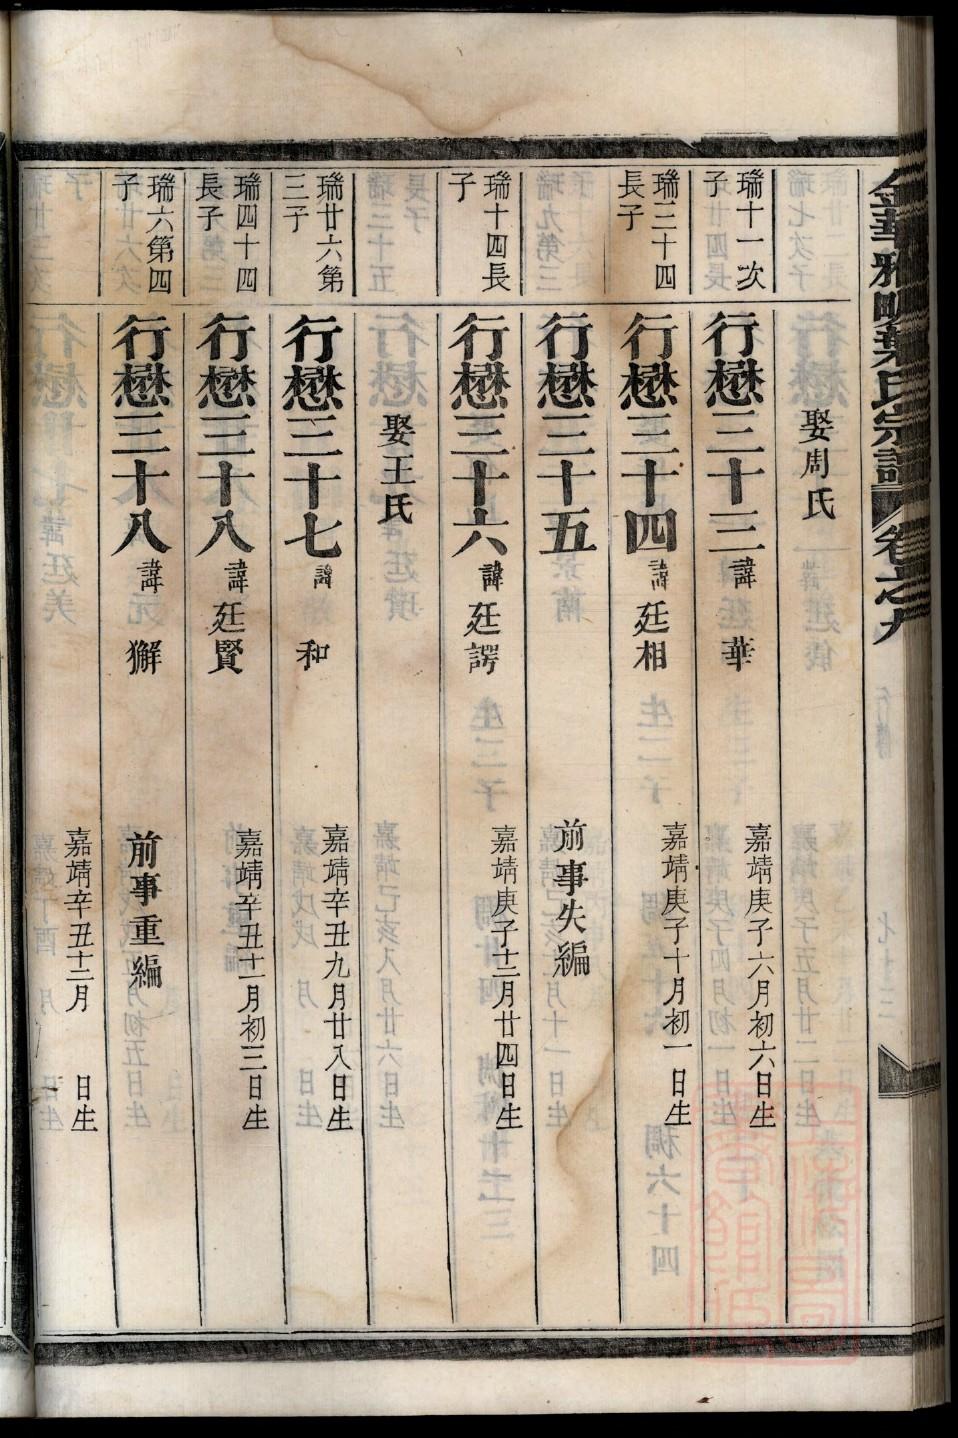 娶周氏
瑞十一次子
行懋三十三 諱 華 嘉靖庚子六月初六日生
瑞三十四長子
行懋三十四 諱廷相 嘉靖庚子十月初一日生
行懋三十五 前事失編
瑞十四長子
行懋三十六 諱廷諤 嘉靖庚子十二月廿四日生
娶王氏
瑞廿六第三子
行懋三十七 諱 和 嘉靖辛丑九月廿八日生
瑞四十四長子
行懋三十八 諱廷賢 嘉靖辛丑十一月初三日生
瑞六第四子
行懋三十八 諱 獬 前事重編
嘉靖辛丑十二月 日生